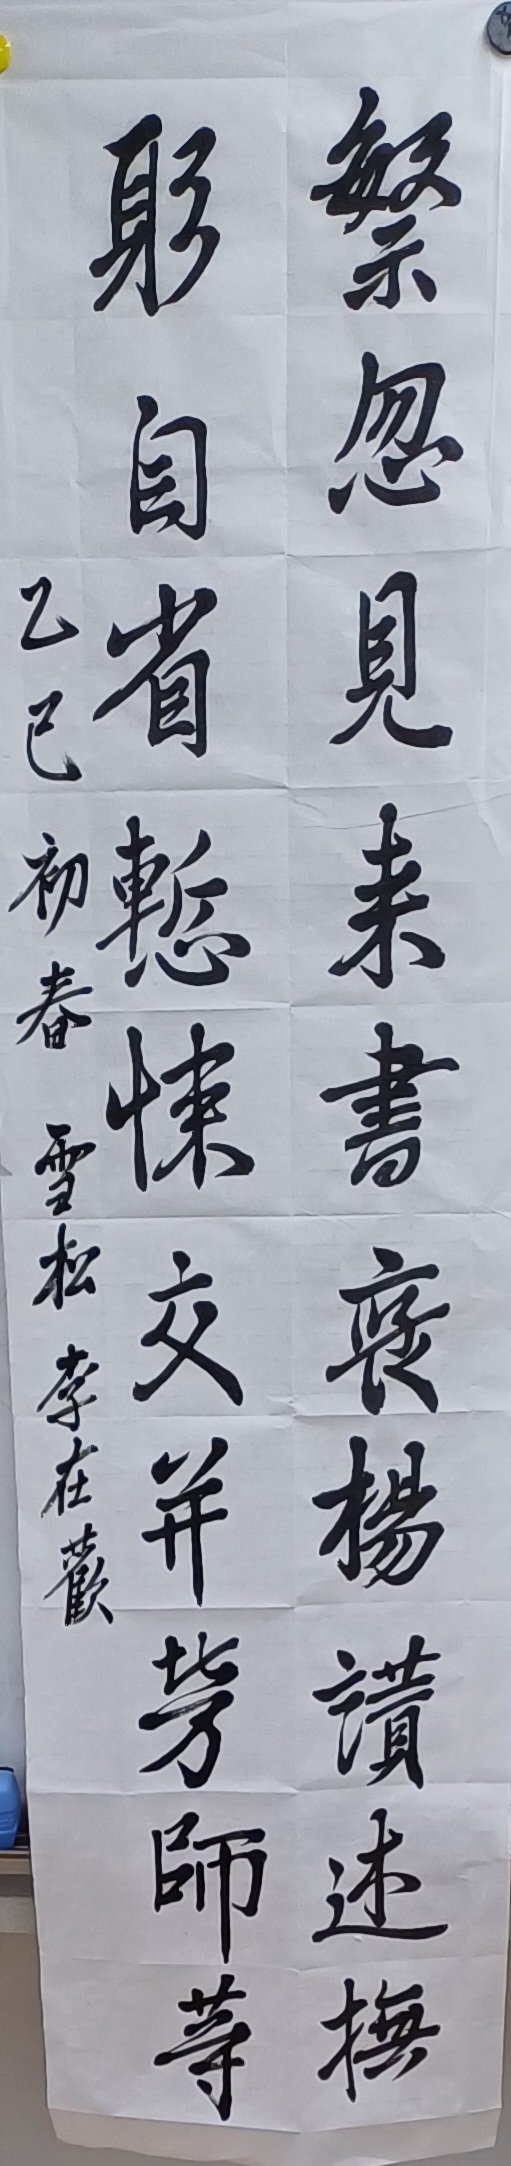 繁忽見来書褒楊讚述撫
躬自省慙悚交并勞師等
乙巳初春 雪松 李在歡